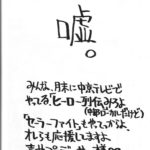 嘘。
みんな、月末に中京テレビで
やってる「ヒーロー列伝」みろよ
(中部ローカルだけど)
「セーラーファイト」もやってっからよ
オレらも応援しますよ